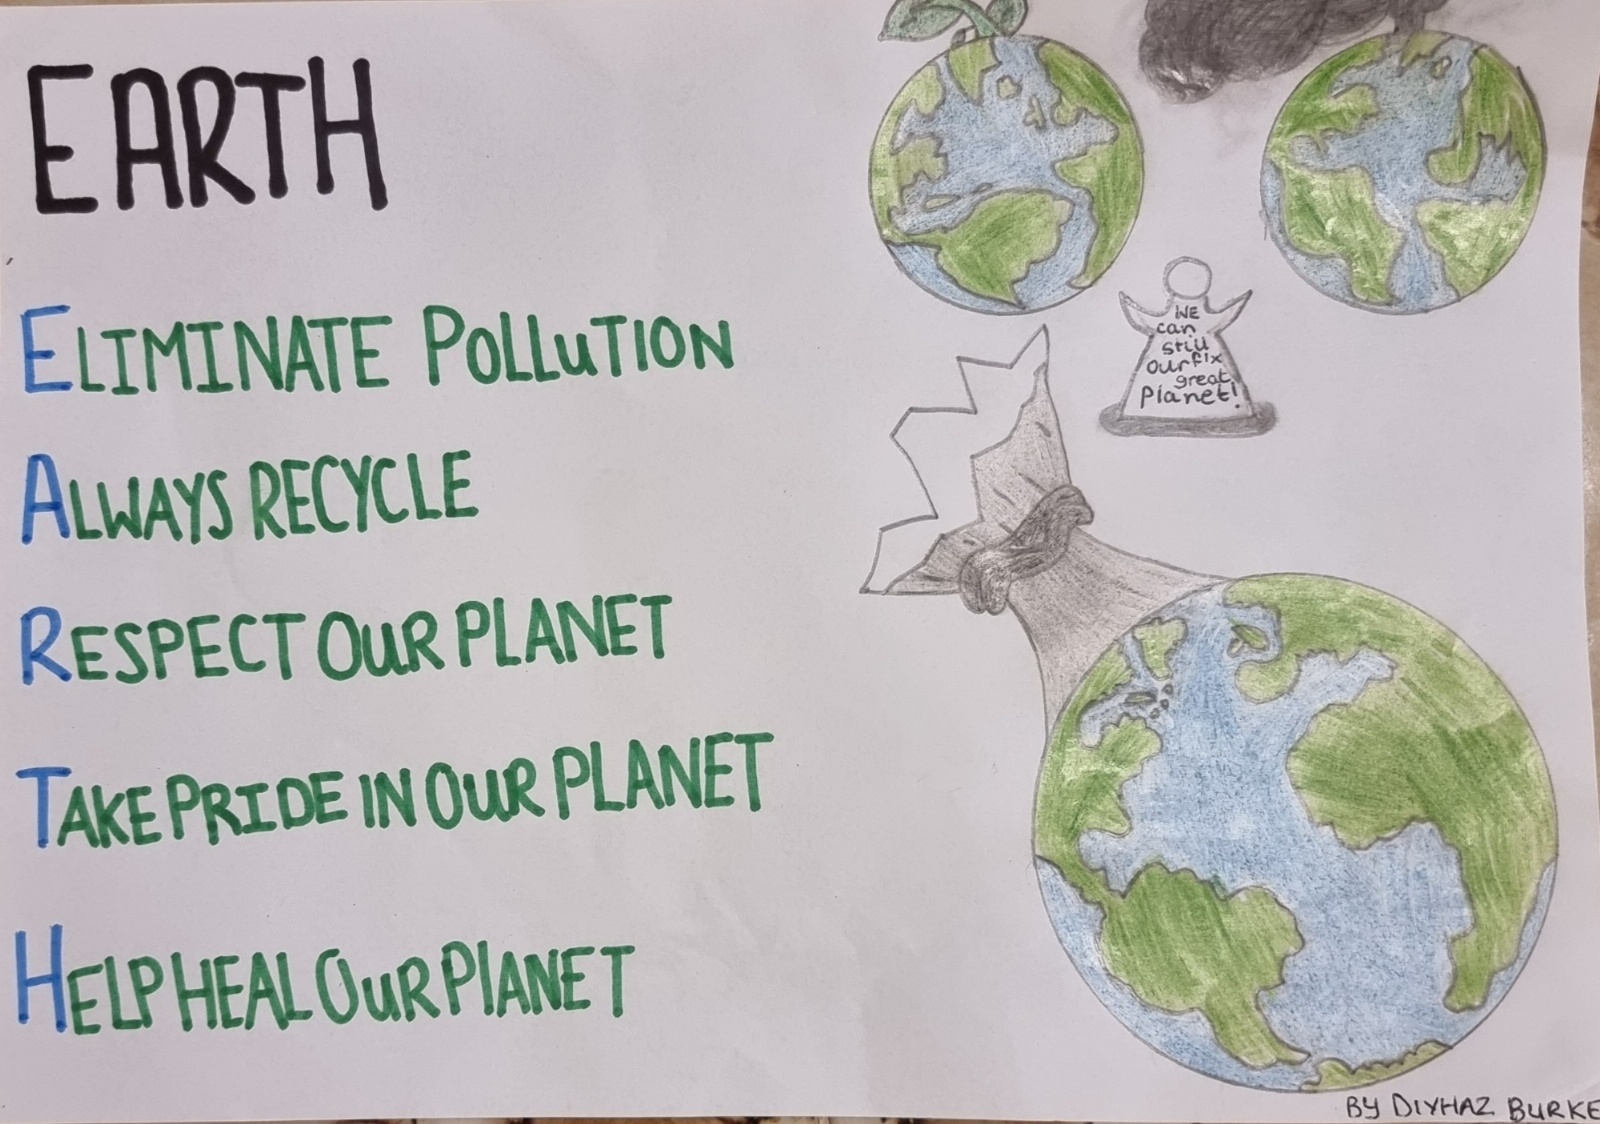 EARTH
ELIMINATE POllUTION
ALWAYS RECYCLE
RESPECT OUR PLANET
TAKE PRIDE IN OUR PLANET
HELP HEAL OUR PlANET
WE
can
still
Our fix
great
Planet!
BY DIYHAZ BURKE